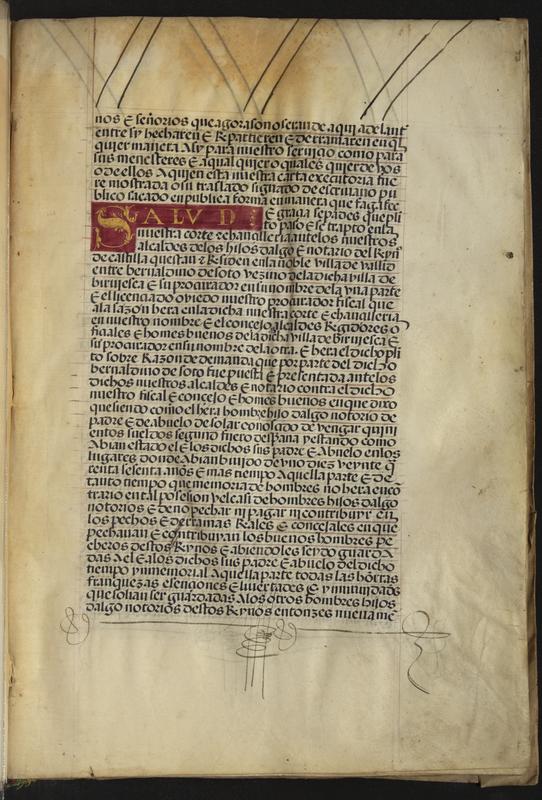 nos E señorios que agora son o seran de aqui adelant
entre sy hecharen E Repartieren E derramaren en ql
quier manera Asy para nuestro seruiçio como para
sus menesteres E a qual quier o quales quier de uos
o dellos A quien esta nuestra carta executoria fue
re mostrada o su traslado signado de escriuano pu
blico sacado en publica forma en manera que faga fee
SALUD E graçia sepades que pli
to paso E se trapto en la
nuestra corte E chançilleria ante los nuestros
alcaldes de los hijos dalgo E notario del Reyno
de castilla que stan E Residen en la noble villa de vallid
entre bernaldino de soto vezino de la dicha villa de
biruiesca E su procurador en su nombre de la vna parte
E el liçençiado oviedo nuestro procurador fiscal que
a la sazon hera en la dicha nuestra corte E chançilleria
en nuestro nombre E el conçejo alcaldes Regidores o
fiçiales E homes buenos de la dicha villa de biruiesca E
su procurador en su nombre de la otra. E hera el dicho pli
to sobre Razon de demanda que por parte del dicho
bernaldino de soto fue puesta E presentada ante los
dichos nuestros alcaldes E notario contra el dicho
nuestro fiscal E conçejo E homes buenos en que dixo
que siendo como el hera hombre hijo dalgo notorio de
padre E de abuelo de solar conosçido de vengar quini
entos sueldos segund fuero despaña y estando como
Abian estado el E los dichos sus padre E Abuelo en los
lugares donde Abian biuido de vno diez veynte q
renta sesenta años E mas tiempo Aquella parte E de
tanto tiempo que memoria de hombres no hera en con
trario en tal posesion vel casi de hombres hijos dalgo
notorios E de no pechar ni pagar ni contribuyr en
los pechos E derramas Reales E conçejales en que
pechauan E contribuyan los buenos hombres pe
cheros destos Reynos E abiendoles seydo guarda
das A el E a los dichos sus padre E abuelo del dicho
tiempo ynmemorial Aquella parte todas las honrras
franquezas esençiones E liuertades E ynmunidades
que solian ser guardadas A los otros hombres hijos
dalgo notorios destos Reynos entonzes nueuame